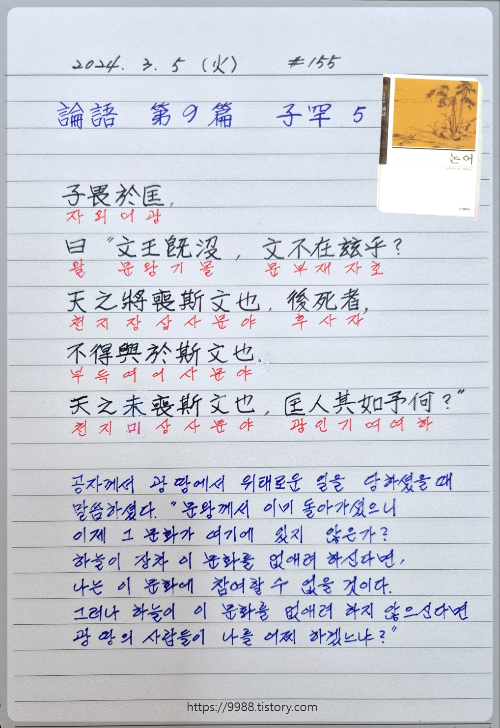 2024. 3. 5 (火) #155
論語 第9篇 子罕 5
논어
子畏於匡,
자 외 어 광
曰 "文王旣沒, 文不在玆乎?
왈 문 왕 기 몰 문 부 재 자 호
天之將喪斯文也, 後死者,
천 지 장 상 사 문 야 후 사 자
不得與於斯文也.
부 득 여 어 사 문 야
天之未喪斯文也, 匡人其如予何?"
천 지 미 상 사 문 야 광 인 기 여 여 하
공자께서 광 땅에서 위태로운 일을 당하셨을 때
말씀하셨다. "문왕께서 이미 돌아가셨으니
이제 그 문화가 여기에 있지 않은가?
하늘이 장차 이 문화를 없애려 하신다면,
나는 이 문화에 참여할 수 없을 것이다.
그러나 하늘이 이 문화를 없애려 하지 않으신다면
광 땅의 사람들이 나를 어찌 하겠느냐?"
https://9988.tistory.com